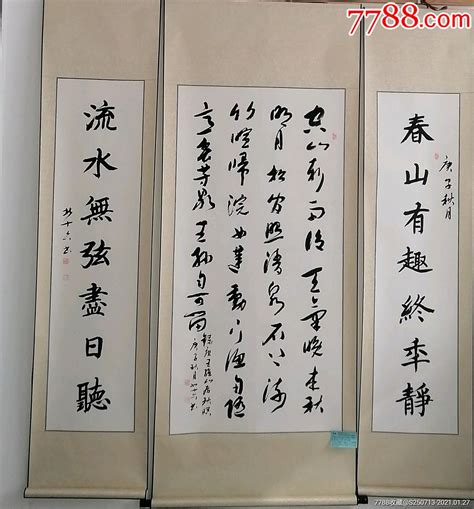 7788.com
春山有趣終年靜
庚子秋月
空山新雨後天氣晚來秋
明月松間照清泉石上流
竹喧歸浣女蓮動下漁舟隨
意春芳歇王孫自可留
錄唐王維山居秋暝
庚子秋月
流水無弦盡日聽
7788收藏@S250713-2021.01.27